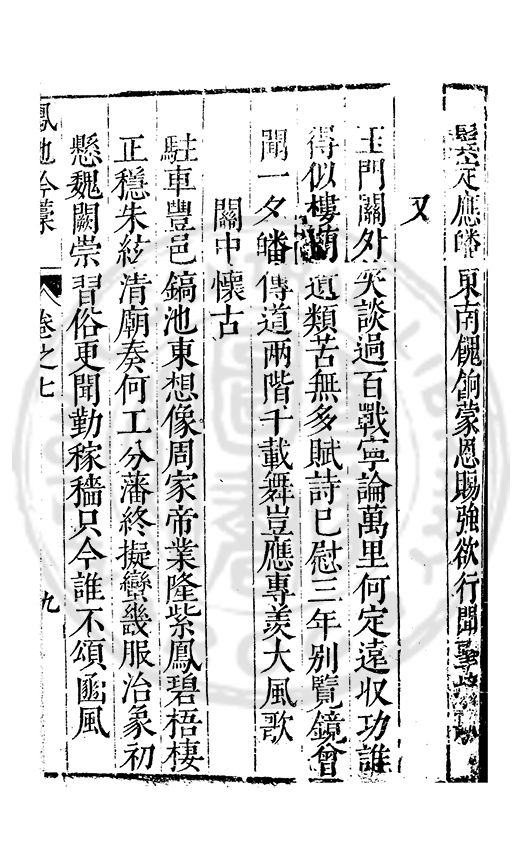 鬓定應皤東南餽餉蒙恩賜強欲行聞
又
玉門關外笑談過百戰寧論萬里何定遠收功誰
得似樓蘭遺類苦無多賦詩已慰三年別覽鏡曾
聞一夕皤傳道兩階千載舞豈應專羨大風歌
關中懷古
駐車豐邑鎬池東想像周家帝業隆紫鳳碧梧棲
正穩朱絃清廟奏何工分藩終擬蠻畿服治象初
懸魏闕崇習俗更聞勤稼穡只今誰不頌豳風
鳳池吟藁 卷之七 九